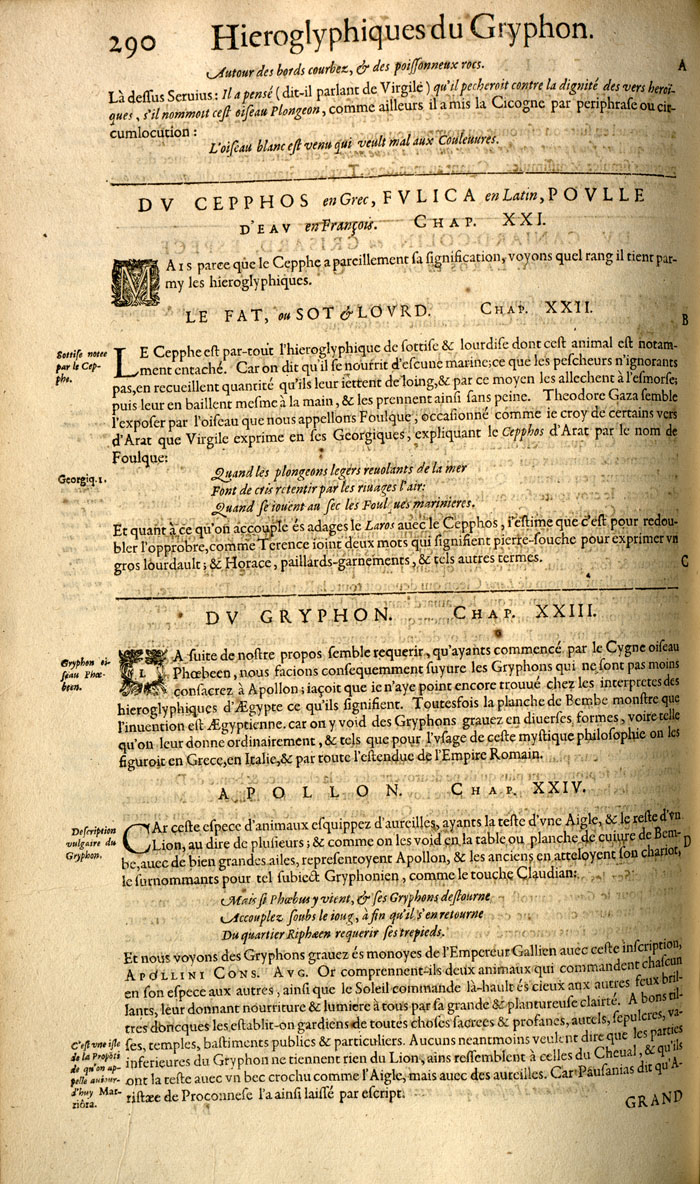 290 Hieroglyphiques du Gryphon.
Autour des bords courbez, & des poiſſonneux rocs.
A
Là deſſus Seruius: Il a penſé (dit-il parlant de Virgile) qu'il pecheroit contre la dignité des vers heroi-
ques, s'il nommoit ceſt oiſeau Plongeon, comme ailleurs il a mis la Cicogne par periphraſe ou cir-
cumlocution:
L'oiſeau blanc eſt venu qui veult mal aux Couleuures.
DV CEPPHOS en Grec, FVLICA en Latin, POVLLE
D'EAV en François. CHAP. XXI.
MAIS parce que le Cepphe a pareillement ſa ſignification, voyons quel rang il tient par-
my les hieroglyphiques.
LE FAT, ou SOT & LOVRD. CHAP. XXII.
B
Sottiſe notee
par le Cep-
phe.
LE Cepphe eſt par-tout l'hieroglyphique de ſottiſe & lourdiſe dont ceſt animal eſt notam-
ment entaché. Car on dit qu'il ſe nourrit d'eſcume marine; ce que les peſcheurs n'ignorants
pas, en recueillent quantité qu'ils leur iettent de loing, & par ce moyen les allechent à l'eſmorſe;
puis leur en baillent meſme à la main, & les prennent ainſi ſans peine. Theodore Gaza ſemble
l'expoſer par l'oiſeau que nous appellons Foulque, occaſionné comme ie croy de certains vers
d'Arat que Virgile exprime en ſes Georgiques, expliquant le Cepphos d'Arat par le nom de
Foulque:
Georgiq. 1.
Quand les plongeons legers reuolants de la mer
Font de cris retentir par les riuages l'air:
Quand ſe iouent au ſec les Foulques marinieres.
Et quant à ce qu'on accouple és adages le Laros auec le Cepphos, i'eſtime que c'eſt pour redou-
bler l'opprobre, comme Terence ioint deux mots qui ſignifient pierre-ſouche pour exprimer vn
gros lourdault; & Horace, paillards-garnements, & tels autres termes.
C
DV GRYPHON. CHAP. XXIII.
Gryphon oi-
ſeau Phœ-
been.
LA ſuite de noſtre propos ſemble requerir, qu'ayants commencé par le Cygne oiſeau
Phœbeen, nous facions conſequemment ſuyure les Gryphons qui ne ſont pas moins
conſacrez à Apollon; iaçoit que ie n'aye point encore trouué chez les interpretes des
hieroglyphiques d'Ægypte ce qu'ils ſignifient. Toutesfois la planche de Bembe monſtre que
l'inuention eſt Ægyptienne. car on y void des Gryphons grauez en diuerſes formes, voire telle
qu'on leur donne ordinairement, & tels que pour l'vſage de ceſte myſtique philoſophie on les
figuroit en Grece, en Italie, & par toute l'eſtendue de l'Empire Romain.
APOLLON. CHAP. XXIV.
Deſcription
vulgaire du
Gryphon.
CAr ceſte eſpece d'animaux eſquippez d'aureilles, ayants la teſte d'vne Aigle, & le reſte d'vn
Lion, au dire de pluſieurs; & comme on les void en la table ou planche de cuiure de Bem-
D
be, auec de bien grandes ailes, repreſentoyent Apollon, & les anciens en atteloyent ſon chariot,
le ſurnommants pour tel ſubiect Gryphonien, comme le touche Claudian:
Mais ſi Phœbus y vient, & ſes Gryphons deſtourne
Accouplez ſoubs le ioug, à fin qu'il s'en retourne
Du quartier Riphæen requerir ſes trepieds.
Et nous voyons des Gryphons grauez és monoyes de l'Empereur Gallien auec ceſte inſcription,
APOLLINI CONS. AVG. Or comprennent-ils deux animaux qui commandent chaſcun
en ſon eſpece aux autres, ainſi que le Soleil commande là-hault és cieux aux autres feux bril-
lants, leur donnant nourriture & lumiere à tous par ſa grande & plantureuſe clairté. A bons til-
tres doncques les eſtablit-on gardiens de toutes choſes ſacrees & profanes, autels, ſepulcres, va-
ſes, temples, baſtiments publics & particuliers. Aucuns neantmoins veulent dire que les parties
inferieures du Gryphon ne tiennent rien du Lion, ains reſſemblent à celles du Cheual, & qu'ils
ont la teſte auec vn bec crochu comme l'Aigle, mais auec des aureilles. Car Pauſanias dit qu'A-
riſtæe de Proconneſe l'a ainſi laiſſé par eſcript.
C'eſt vne iſle
de la Propõti
de qu'on ap-
pelle auiour-
d'huy Mar-
mora.
GRAND